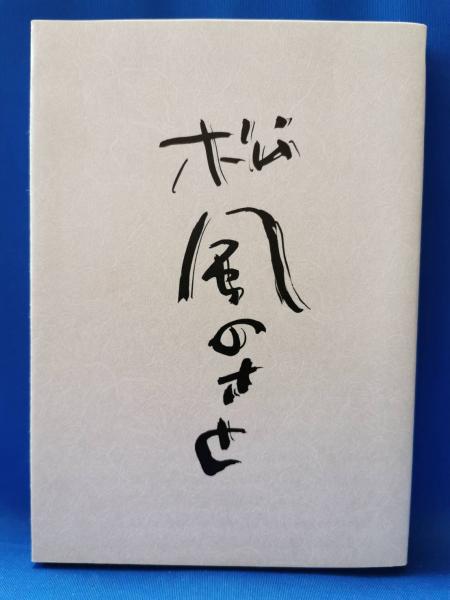 松風のさと